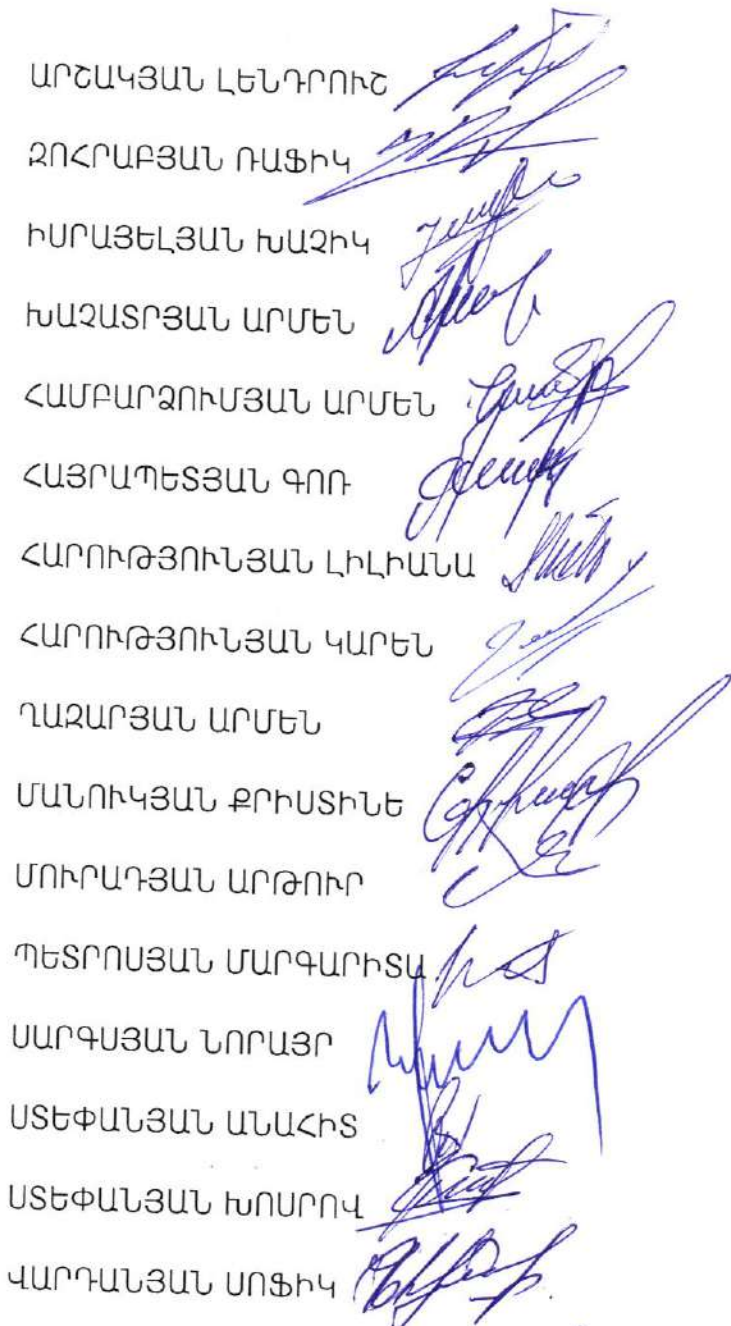 ԱՐՇԱԿՅԱՆ ԼԵՆԴՐՈՒՇ
ԶՈՀՐԱԲՅԱՆ ՌԱՖԻԿ
ԻՍՐԱՅԵԼՅԱՆ ԽԱՉԻԿ
ԽԱՉԱՏՐՅԱՆ ԱՐՄԵՆ
ՀԱՄԲԱՐՁՈՒՄՅԱՆ ԱՐՄԵՆ
ՀԱՅՐԱՊԵՏՅԱՆ ԳՈՌ
ՀԱՐՈՒԹՅՈՒՆՅԱՆ ԼԻԼԻԱՆԱ
ՀԱՐՈՒԹՅՈՒՆՅԱՆ ԿԱՐԵՆ
ՂԱԶԱՐՅԱՆ ԱՐՄԵՆ
ՄԱՆՈՒԿՅԱՆ ՔՐԻՍՏԻՆԵ
ՄՈՒՐԱԴՅԱՆ ԱՐԹՈՒՐ
ՊԵՏՐՈՍՅԱՆ ՄԱՐԳԱՐԻՏԱ
ՍԱՐԳՍՅԱՆ ՆՈՐԱՅՐ
ՍՏԵՓԱՆՅԱՆ ԱՆԱՀԻՏ
ՍՏԵՓԱՆՅԱՆ ԽՈՍՐՈՎ
ՎԱՐԴԱՆՅԱՆ ՍՈՖԻԿ